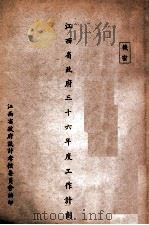 機密
江西省政府三十六年度工作計劃
江西省政府設計考核委員會編印